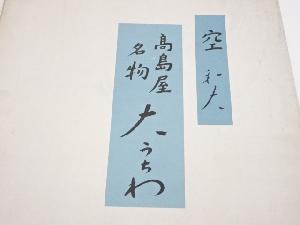 空 和夫
髙島屋
名物
大うちわ